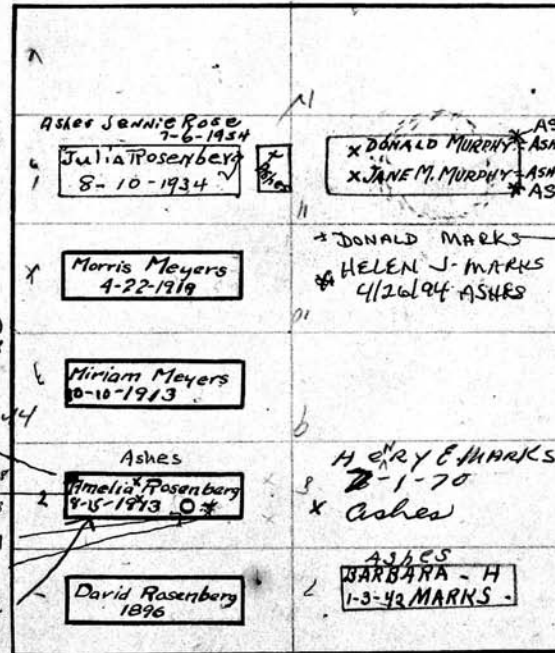 Ashes Jennie Rose
7-6-1934
Julia Rosenberg
8-10-1934
Ashes
Morris Meyers
4-22-1919
Miriam Meyers
10-10-1913
Ashes
Amelia Rosenberg
David Rosenberg
1896
11
x DONALD MURPHY-
x JANE M. MURPHY-
DONALD MARKS
HELEN J- MARKS
4/26/94 ASHES
HENRY E MARKS
x ashes
Ashes
BARBARA - H
1-3-42 MARKS -